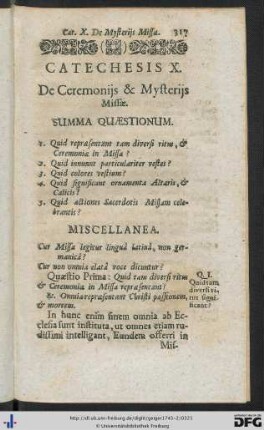 Cat. X. De Mysterijs Missa. 317
CATECHESIS X.
De Ceremonijs & Mysterijs
Missæ.
SUMMA QUÆSTIONUM.
1. Quid repræsentant tam diversi ritus, &
Ceremoniæ in Missa?
2. Quid innuunt particulariter vestes?
3. Quid colores vestium?
4. Quid significant ornamenta Altaris, &
Calicis?
5. Quid actiones Sacerdotis Missam cele-
brantis?
MISCELLANEA.
Cur Missa legitur linguâ latinâ, non ger-
manicâ?
Cur non omnia elatâ voce dicuntur?
Quæstio Prima: Quid tam diversi ritus
& Ceremoniæ in Missa repræsentant?
Q. I.
Quid tam
diversi ri-
tus signi-
ficant?
R. Omnia repræsentant Christi passionem,
& mortem.
In hunc enim finem omnia ab Ec-
clesia sunt instituta, ut omnes etiam ru-
dissimi intelligant, Eundem offerri in
Mis-
http://dl.ub.uni-freiburg.de/diglit/geiger1745-2/0323
© Universitätsbibliothek Freiburg
DFG